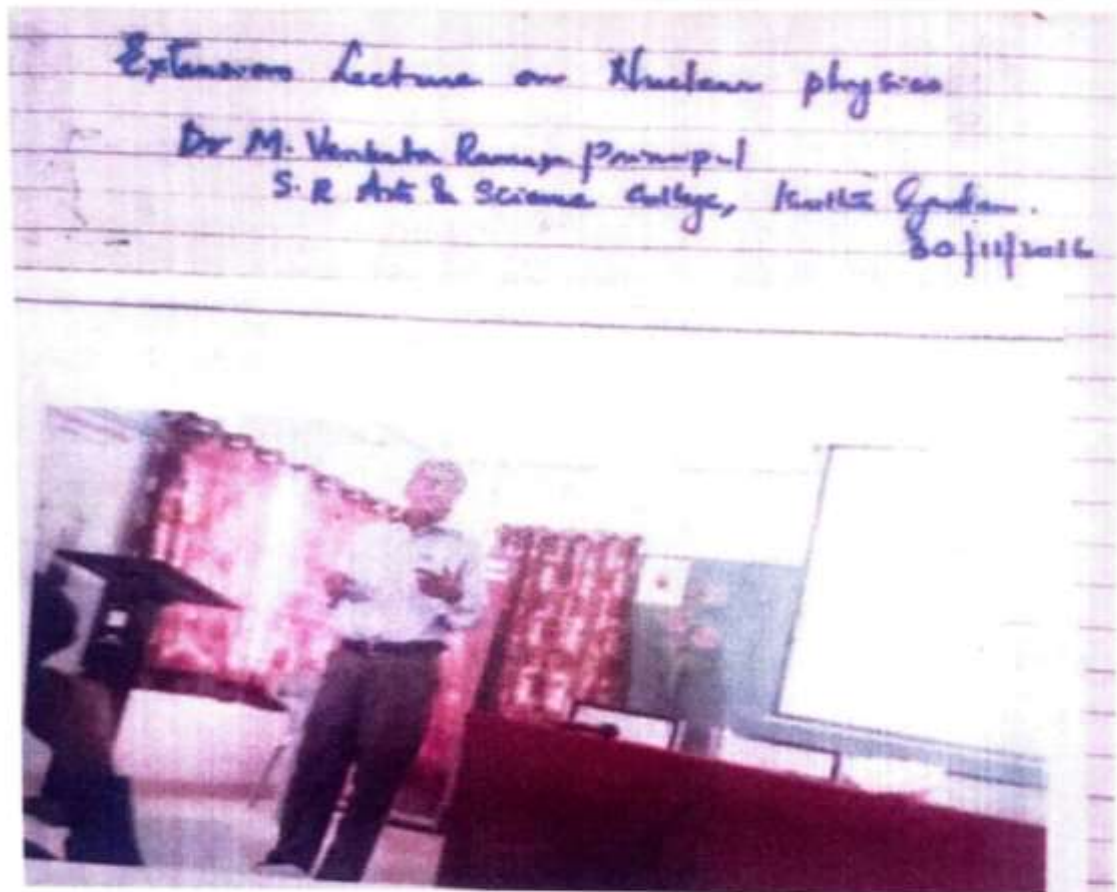 Extension Lecture on Nuclear physics
Dr M. Venkata Ramaya Principal
S. R Arts & Science College,
30/11/2016